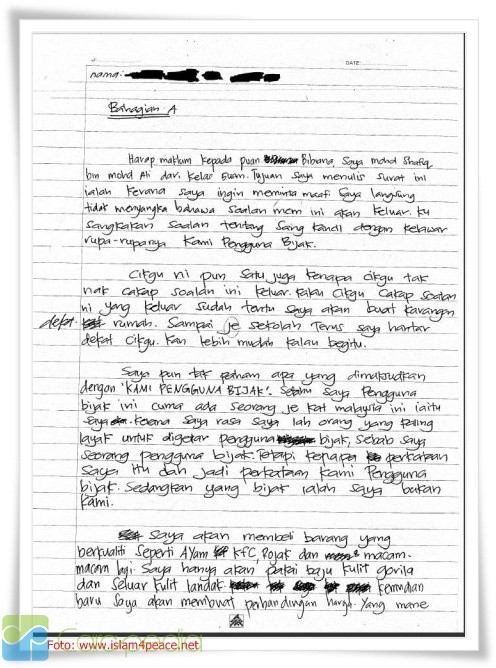 DATE:
nama:
Bahagian A
Harap maklum kepada puan Bibana, Saya mohd Shafiq
bin mohd Ali dari kelas 5uan. Tujuan saya menulis surat ini
ialah kerana saya ingin meminta maaf. Saya langsung
tidak menyangka bahawa soalan mcm ini akan keluar. Ku
sangkakan soalan tentang sang kancil dengan kelawar
rupa-rupanya Kami Pengguna Bijak.
Cikgu ni pun satu juga kenapa cikgu tak
nak cakap soalan ini keluar. Kalau cikgu cakap soalan
ni yang keluar sudah tentu saya akan buat karangan
dekat rumah. Sampai je sekolah terus saya hantar
dekat cikgu. Kan lebih mudah kalau begitu.
Saya pun tak paham apa yang dimaksudkan
dengan 'KAMI PENGGUNA BIJAK'. Setahu saya Pengguna
bijak ini cuma ada seorang je kat malaysia ini iaitu
saya. Kerana saya rasa saya lah orang yang paling
layak untuk digelar pengguna bijak, sebab saya
seorang pengguna bijak. Tetapi kenapa perkataan
saya itu dah jadi perkataan kami Pengguna
bijak. Sedangkan yang bijak ialah saya bukan
kami.
Saya akan membeli barang yang
berkualiti seperti Ayam KFC, Rojak dan macam-
macam lagi. Saya hanya akan pakai baju kulit gorila
dan seluar kulit landak kemudian
baru saya akan membuat perbandingan harga. Yang mane
Foto: www.islam4peace.net